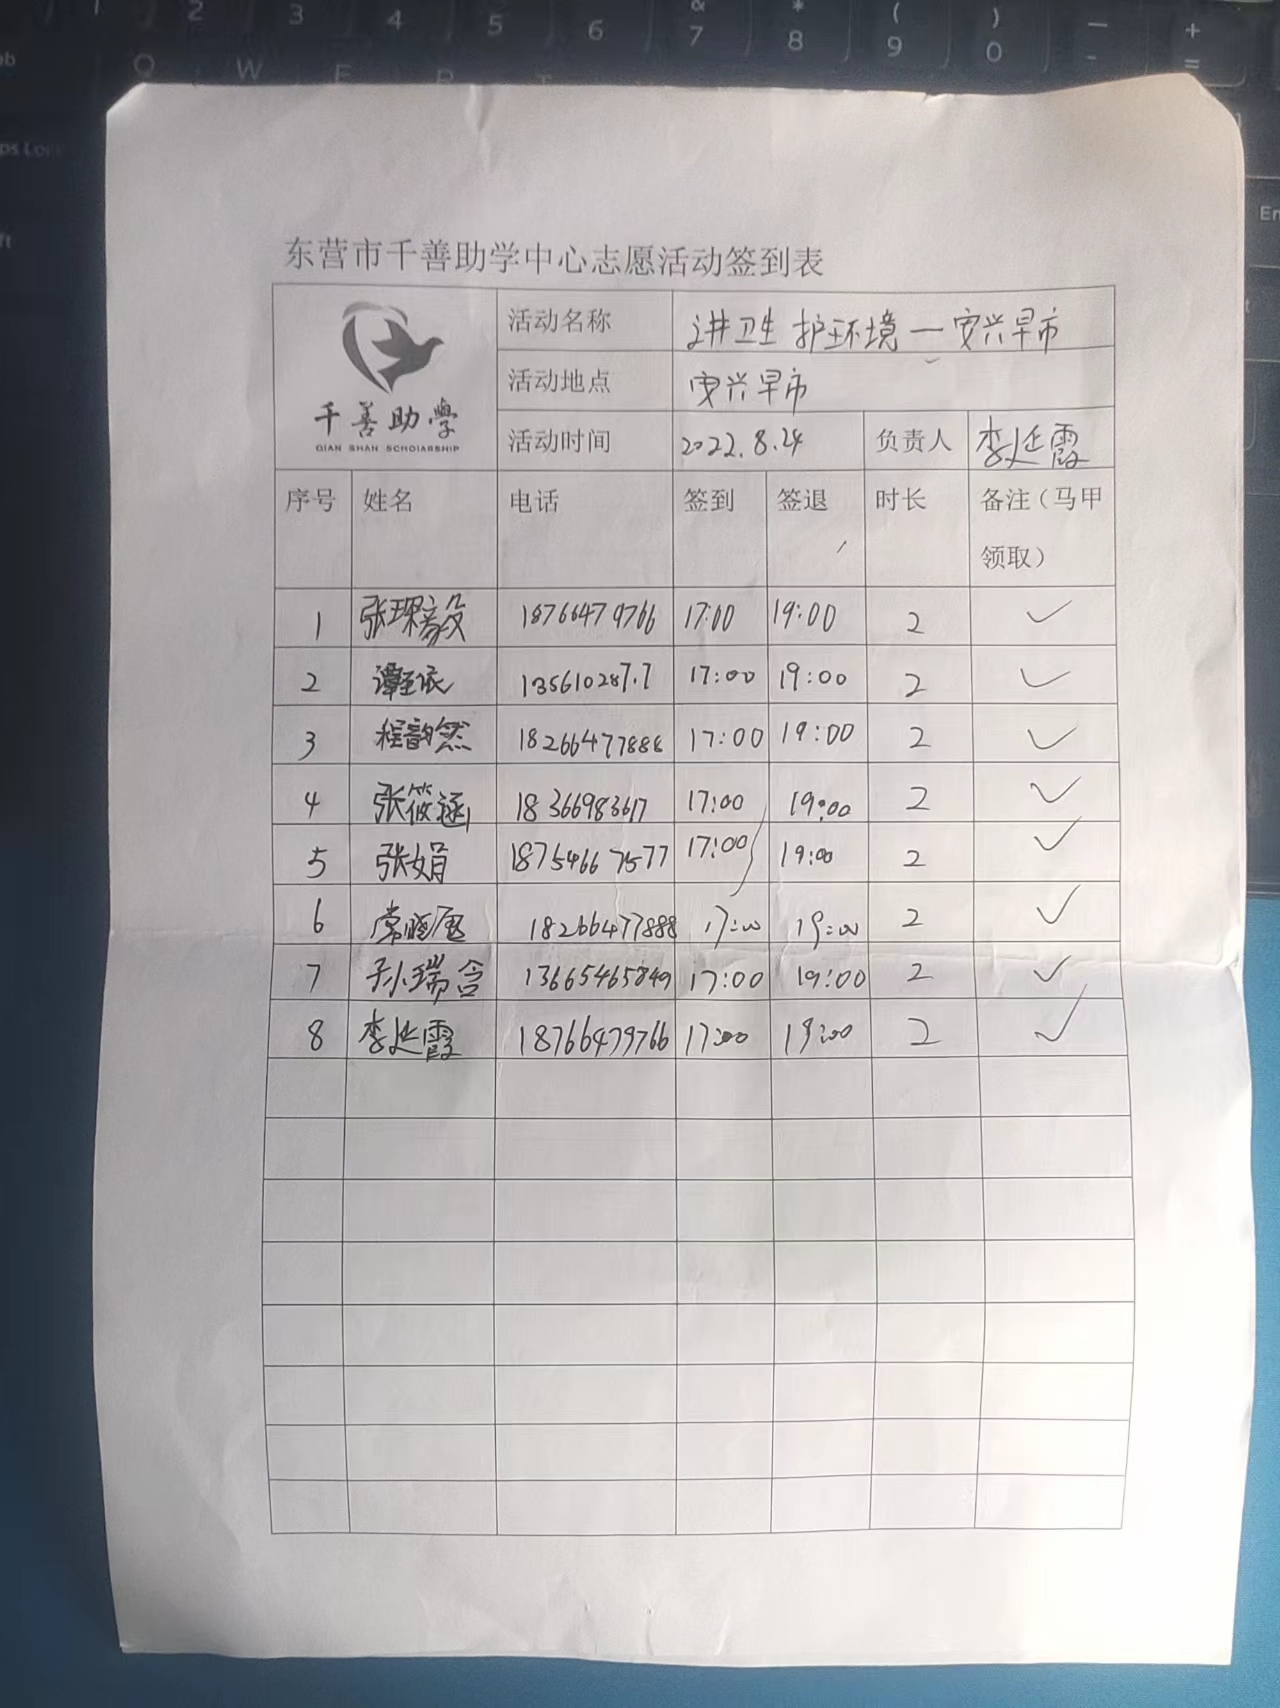 东营市千善助学中心志愿活动签到表
千善助學
QIAN SHAN SCHOLARSHIP
活动名称 讲卫生 护环境 — 安兴早市
活动地点 安兴早市
活动时间 2022.8.24 负责人 李延霞
序号 姓名 电话 签到 签退 时长 备注（马甲
领取）
1 张琛毅 18766479766 17:00 19:00 2 ✓
2 谭至依 135610287.7 17:00 19:00 2 ✓
3 程韵然 18266477888 17:00 19:00 2 ✓
4 张筱涵 18366983617 17:00 19:00 2 ✓
5 张娟 18754667577 17:00 19:00 2 ✓
6 常晓 18266477888 17:00 19:00 2 ✓
7 孙瑞含 13665465849 17:00 19:00 2 ✓
8 李延霞 18766479766 17:00 19:00 2 ✓